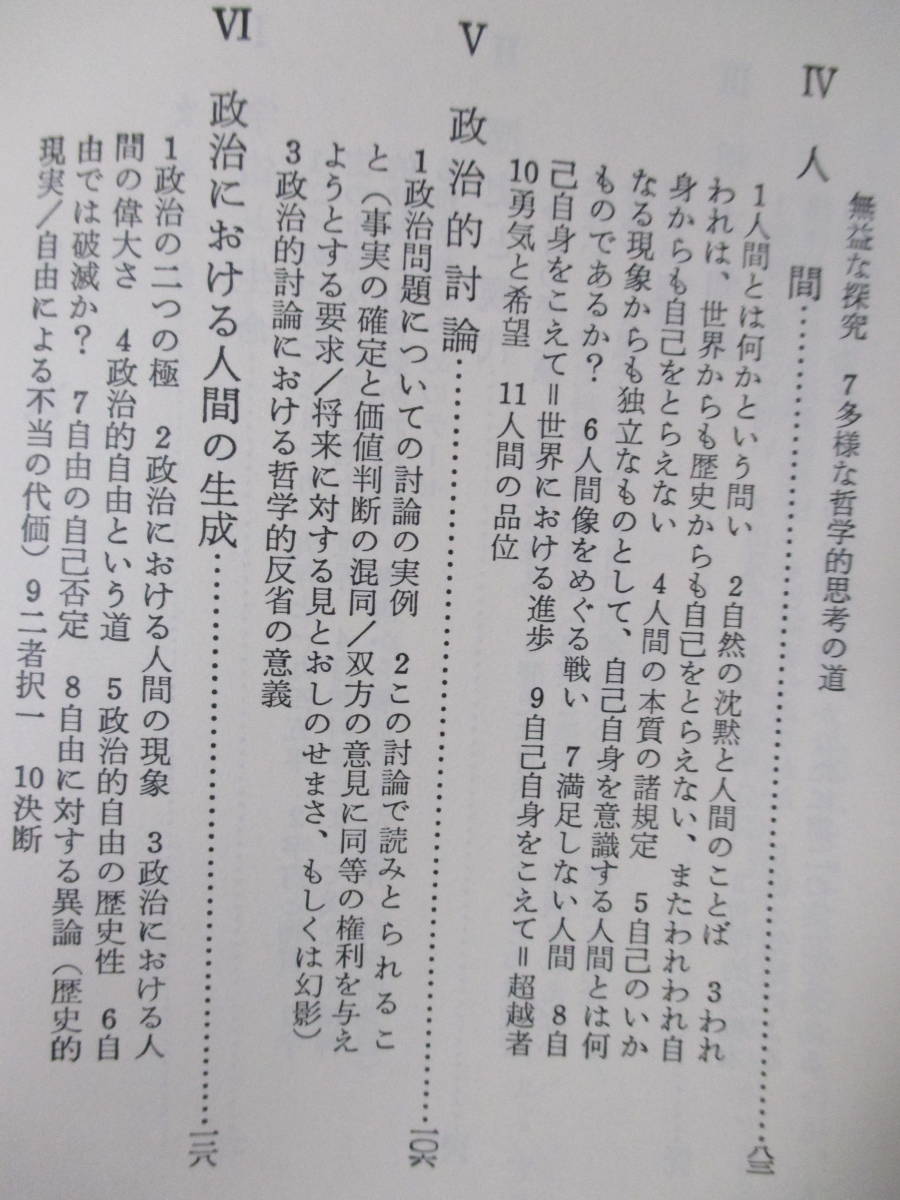 無益な探究　7多様な哲学的思考の道
Ⅳ　人　間……………………………………八三
1人間とは何かという問い　2自然の沈黙と人間のことば　3われ
われは、世界からも歴史からも自己をとらえない、またわれわれ自
身からも自己をとらえない　4人間の本質の諸規定　5自己のいか
なる現象からも独立なものとして、自己自身を意識する人間とは何
ものであるか？　6人間像をめぐる戦い　7満足しない人間　8自
己自身をこえて＝世界における進歩　9自己自身をこえて＝超越者
10勇気と希望　11人間の品位
Ⅴ　政治的討論……………………………………一〇六
1政治問題についての討論の実例　2この討論で読みとられるこ
と（事実の確定と価値判断の混同/双方の意見に同等の権利を与え
ようとする要求/将来に対する見とおしのせまさ、もしくは幻影）
3政治的討論における哲学的反省の意義
Ⅵ　政治における人間の生成……………………………………一二八
1政治の二つの極　2政治における人間の現象　3政治における人
間の偉大さ　4政治的自由という道　5政治的自由の歴史性　6自
由では破滅か？　7自由の自己否定　8自由に対する異論（歴史的
現実/自由による不当の代価）9二者択一　10決断